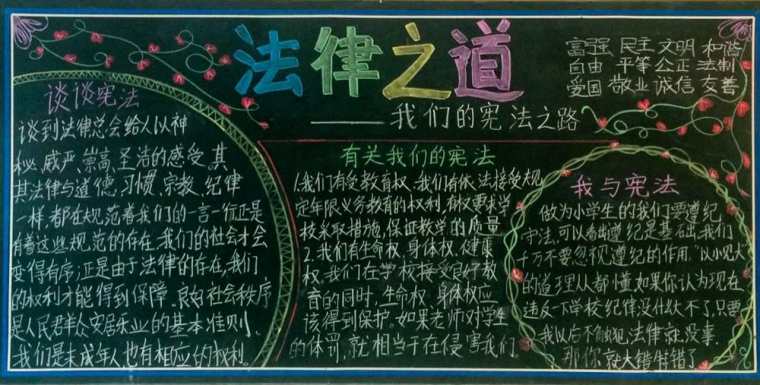 法律之道
——我们的宪法之路
富强 民主 文明 和谐
自由 平等 公正 法制
爱国 敬业 诚信 友善
谈谈宪法
谈到法律总会给人以神
秘、威严、崇高、圣洁的感受。其
其法律与道德、习惯、宗教、纪律
一样，都在规范着我们的一言一行正是
有着这些规范的存在，我们的社会才会
变得有序；正是由于法律的存在，我们
的权利才能得到保障。良好社会秩序
是人民群众安居乐业的基本准则，
我们是未成年人也有相应的权利。
有关我们的宪法
1.我们有受教育权。我们有依法接受规
定年限义务教育的权利，有权要求学
校采取措施，保证教学的质量
2.我们有生命权、身体权、健康
权。我们在学校接受良好教
育的同时，生命权、身体权应
该得到保护。如果老师对学生
的体罚，就相当于在侵害我们
我与宪法
做为小学生的我们要遵纪
守法，可以看出遵纪是基础，我们
千万不要忽视遵纪的作用。“以小见大
的道理人人都懂如果你认为现在
违反一下学校纪律没什么大不了，只要
我以后不触犯法律就没事，
那你就大错特错了